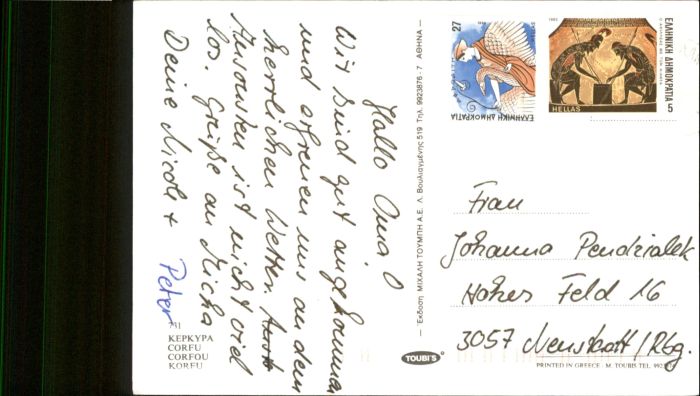 Hallo Oma!
Wir sind gut angekommen
und erfreuen uns an dem
herrlichen Wetter.
Ansonsten ist nicht viel
los. Grüße an Micha
Deine Nicole + Peter
731
ΚΕΡΚΥΡΑ
CORFU
CORFOU
KORFU
— Έκδοση: ΜΙΧΑΛΗ ΤΟΥΜΠΗ Α.Ε. Λ. Βουλιαγμένης 519 Τηλ. 9923876 - 7 ΑΘΗΝΑ —
TOUBI'S
27
ΕΛΛΗΝΙΚΗ ΔΗΜΟΚΡΑΤΙΑ
HELLAS
ΕΛΛΗΝΙΚΗ ΔΗΜΟΚΡΑΤΙΑ 5
HELLAS
Frau
Johanna Pendzialek
Hohes Feld 16
3057 Neustadt / Rbg.
PRINTED IN GREECE - M. TOUBIS TEL. 992